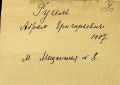 Кугель
Абрам Григорьевич
1907
М. Мещанская № 8.